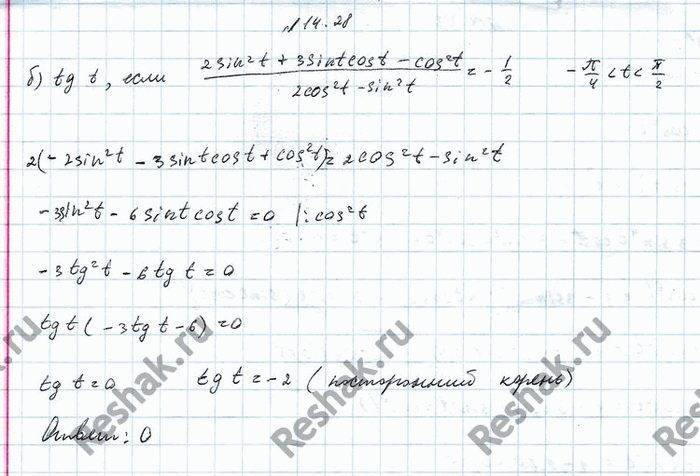 №14.28
б) tg t, если (2sin²t + 3sint cost - cos²t)/(2cos²t - sin²t) = -1/2   -π/4 < t < π/2
2(-2sin²t - 3sintcost + cos²t) = 2cos²t - sin²t
-3sin²t - 6sintcost = 0 |: cos²t
-3tg²t - 6tg t = 0
tg t (-3tg t - 6) = 0
tg t = 0   tg t = -2 (посторонний корень)
Ответ: 0
Reshak.ru
Reshak.ru
Reshak.ru